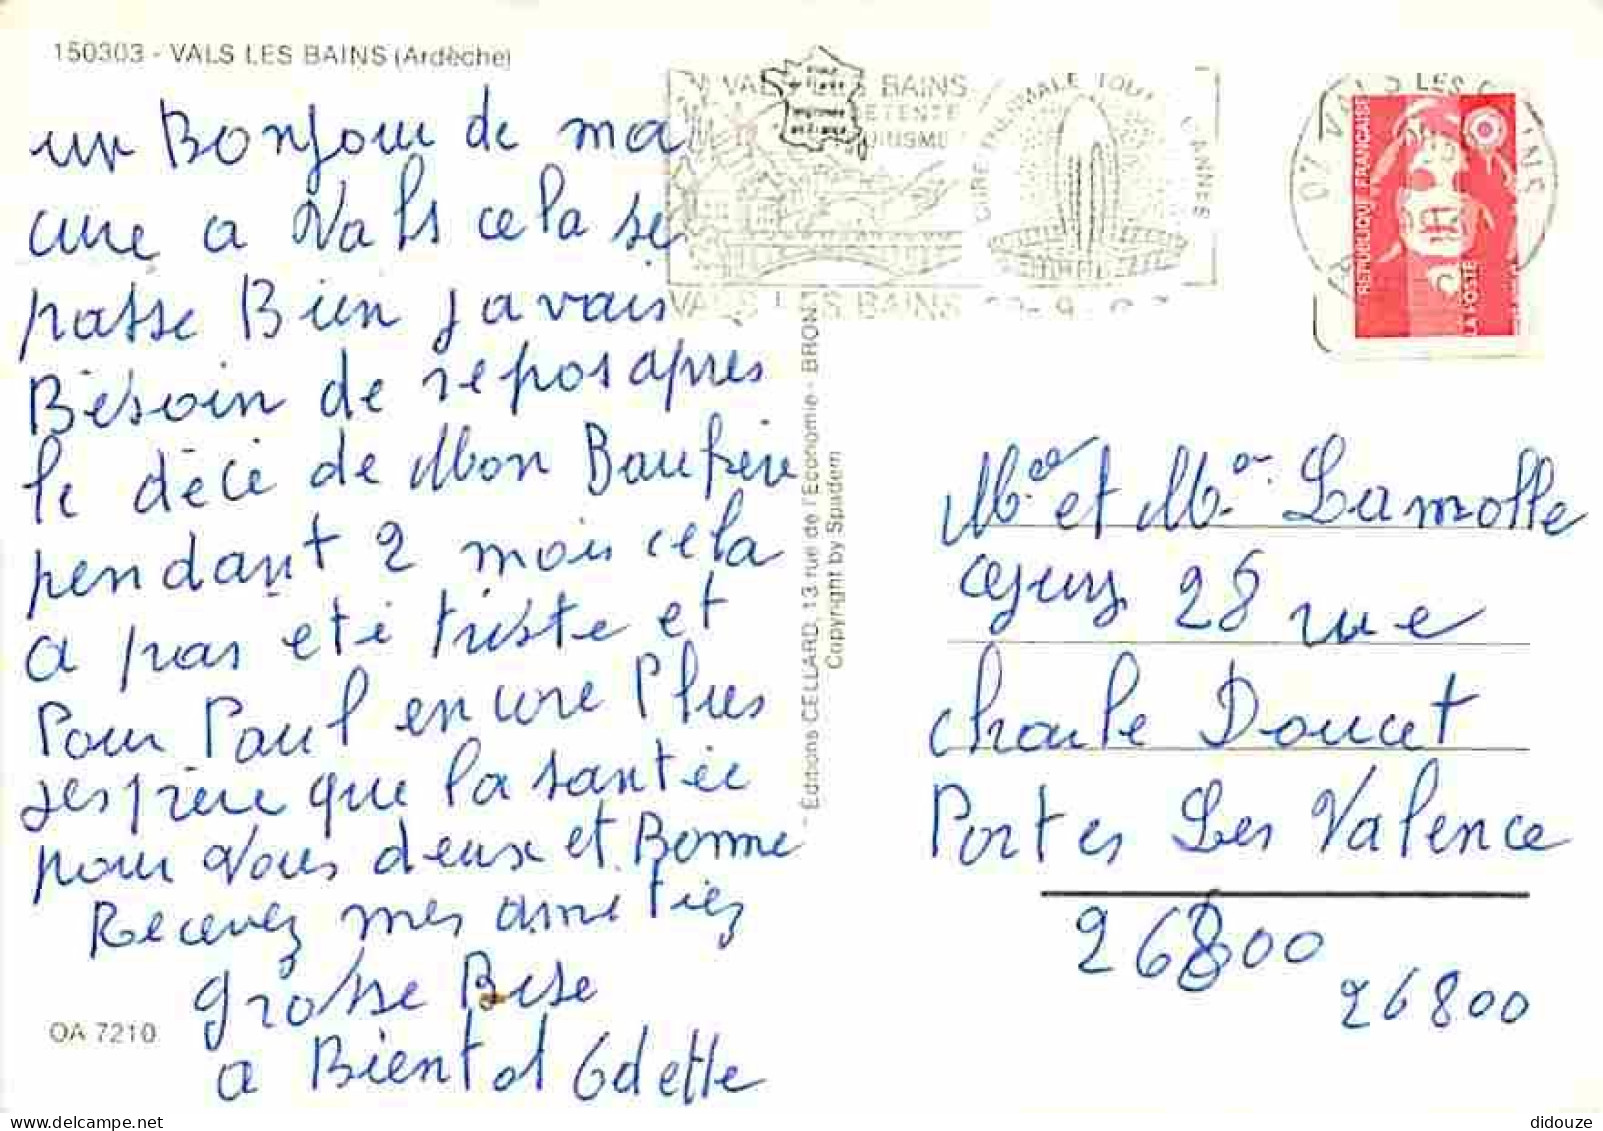 150303 - VALS LES BAINS (Ardèche)
un Bonjour de ma
cure a Vals cela se
passe Bien Javais
Bésoin de repos apres
le décé de Mon Baufrère
pendant 2 mois cela
a pas eté triste et
Pour Paul encore Plus
Jespère que la santée
pour Vous deux et Bonne
Recevez mes ametiez
grosse Bise
a Bientot Odette
OA 7210
VALS LES BAINS
DETENTE
TOURISME
CURE THERMALE TOUTE L'ANNEE
VALS LES BAINS
07 VALS LES BAINS
REPUBLIQUE FRANÇAISE
LA POSTE
Éditions CELLARD, 13 rue de l'Economie - BRON
Copyright by Spadem
Mr et Mme Lamotte
28 rue
Charle Doucet
Portes Les Valence
26800
26800
didouze